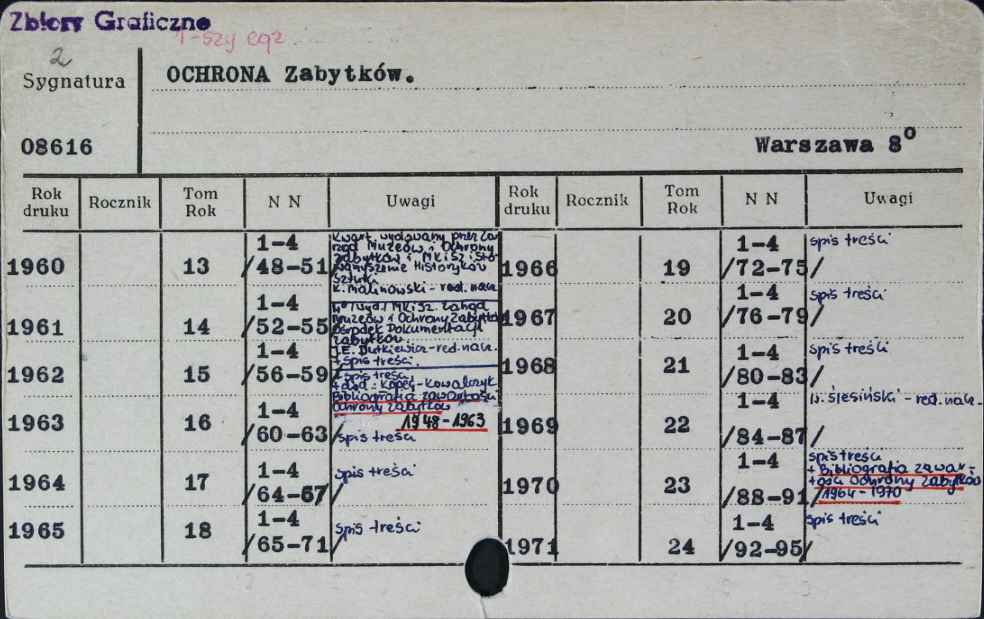 Zbiory Graficzne
1-szy egz
2
Sygnatura
OCHRONA Zabytków.
08616
Warszawa 8°
Rok druku Rocznik Tom Rok N N Uwagi Rok druku Rocznik Tom Rok N N Uwagi
1960 13 1-4 /48-51/
Kwart. wydawany przez Za
rząd Muzeów i Ochrony
Zabytków i MKiSz i Sto
warzyszenie Historyków
Sztuki
K. Malinowski - red. nacz.
1961 14 1-4 /52-55
4° /wyd/ MKiSz. Zarząd
Muzeów i Ochrony Zabytków
Ośrodek Dokumentacji
Zabytków.
J.E. Dutkiewicz - red. nacz.
+ spis treści.
1962 15 1-4 /56-59
+ spis treści
+ dod: Kopeć - Kowalczyk
Bibliografia zawartości
Ochrony Zabytków
1948-1963
1963 16 1-4 /60-63/ spis treści
1964 17 1-4 /64-67/ spis treści
1965 18 1-4 /65-71/ spis treści
1966 19 1-4 /72-75/ spis treści
1967 20 1-4 /76-79/ spis treści
1968 21 1-4 /80-83/ spis treści
1969 22 1-4 /84-87/ Ślesiński - red. nacz.
1970 23 1-4 /88-91/
spis treści
+ Bibliografia zawar-
tości Ochrony Zabytków
1964-1970
1971 24 1-4 /92-95/ spis treści